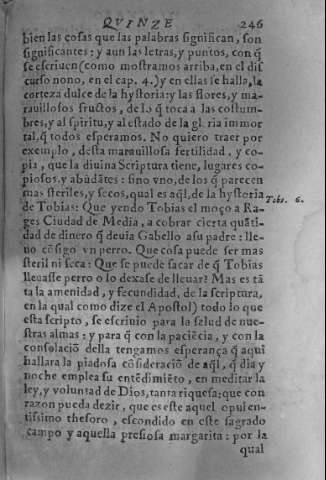 QVINZE 246
bien las cosas que las palabras significan, son
significantes: y aun las letras, y puntos, con q̃
se escriuen (como mostramos arriba, en el dis
curso nono, en el cap. 4.) y en ellas se halla, la
corteza dulce de la hystoria: y las flores, y ma-
rauillosos fructos, de lo q̃ toca a las costum-
bres, y al spiritu, y al estado de la gl. ria immor
tal, q̃ todos esperamos. No quiero traer por
exemplo, desta marauillosa fertilidad, y co-
pia, que la diuina Scriptura tiene, lugares co-
piosos y abũdãtes: sino vno, de los q̃ parecen
mas steriles, y secos, qual es aq̃l, de la hystoria
de Tobias: Que yendo Tobias el moço a Ra-
Tobi. 6.
ges Ciudad de Media, a cobrar cierta quãti-
dad de dinero q̃ deuia Gabello a su padre: lle-
uo cõsigo vn perro. Que cosa puede ser mas
steril ni seca: Que se puede sacar de q̃ Tobias
lleuasse perro o lo dexase de lleuar? Mas es tã
ta la amenidad, y fecundidad, de la scriptura,
en la qual como dize el Apostol) todo lo que
esta scripto, se escriuio para la salud de nue-
stras almas: y para q̃ con la paciẽcia, y con la
consolaciõ della tengamos esperança q̃ aqui
hallara la piadosa cõsideraciõ de aq̃l, q̃ dia y
noche emplea su entẽdimiẽto, en meditar la
ley, y voluntad de Dios, tanta riquesa: que con
razon pueda dezir, que es este aquel opulen-
tissimo thesoro, escondido en este sagrado
campo y aquella presiosa margarita: por la
qual